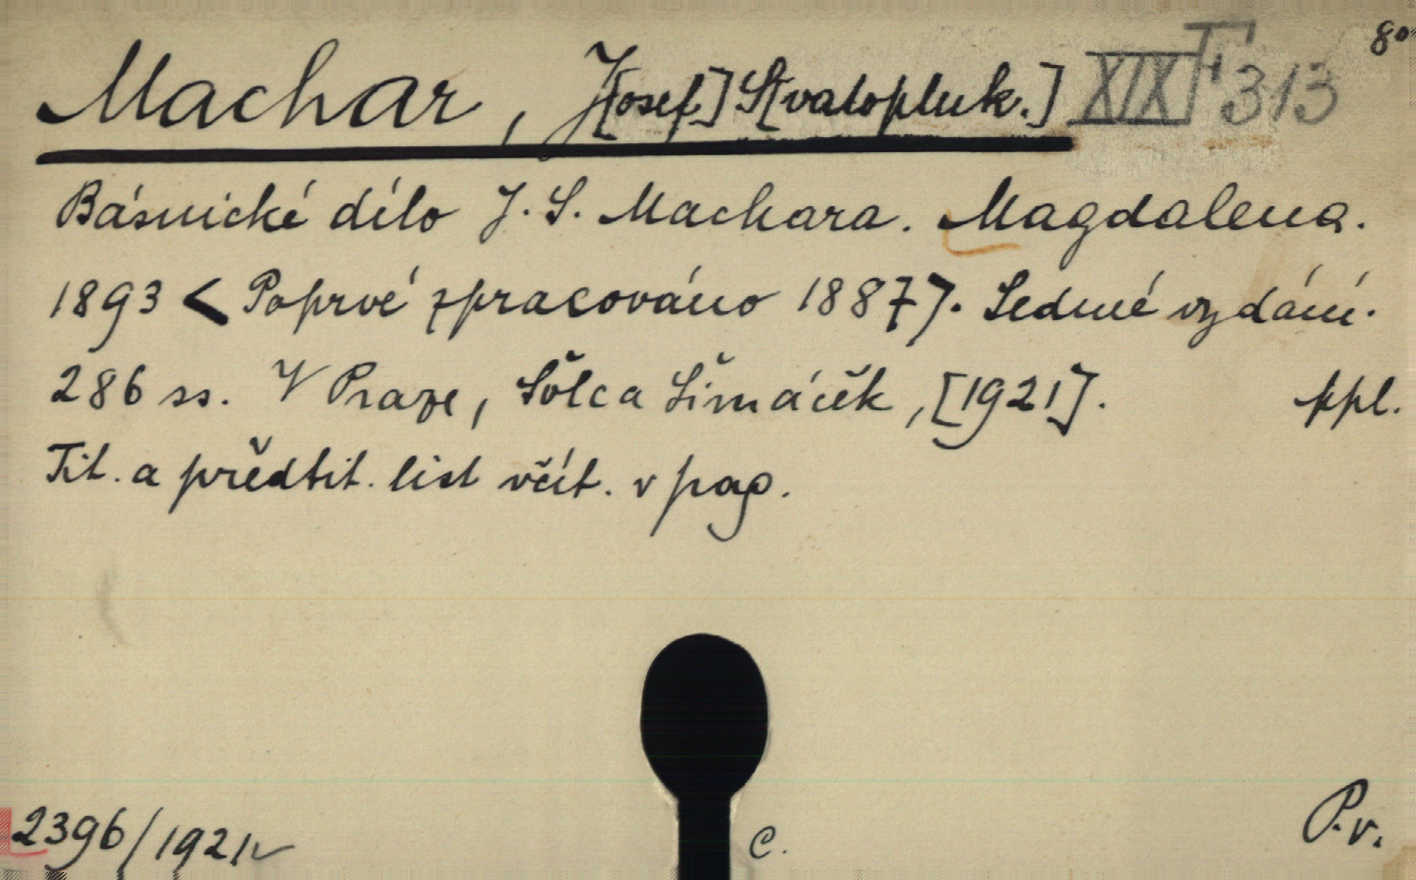 Machar, J[osef] S[vatopluk.] XIX F 313 8°
Básnické dílo J. S. Machara. Magdalena.
1893 < Poprvé zpracováno 1887>. Sedmé vydání.
286 ss. V Praze, Šolc a Šimáček, [1921]. kpl.
Tit. a předtit. list včít. v pag.
2396/1921 C. P.v.